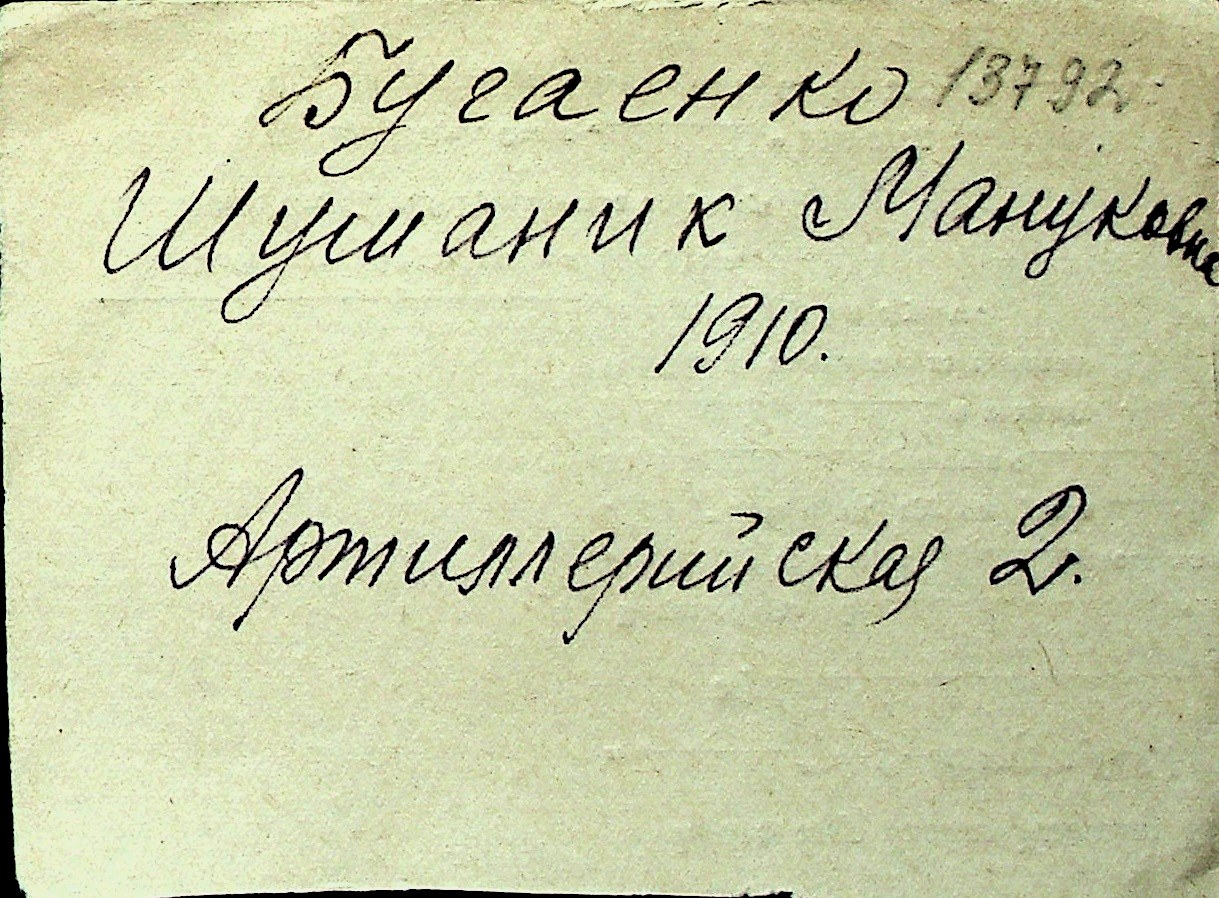 Бугаенко 13792
Шушаник Мануковна
1910.
Артиллерийская 2.